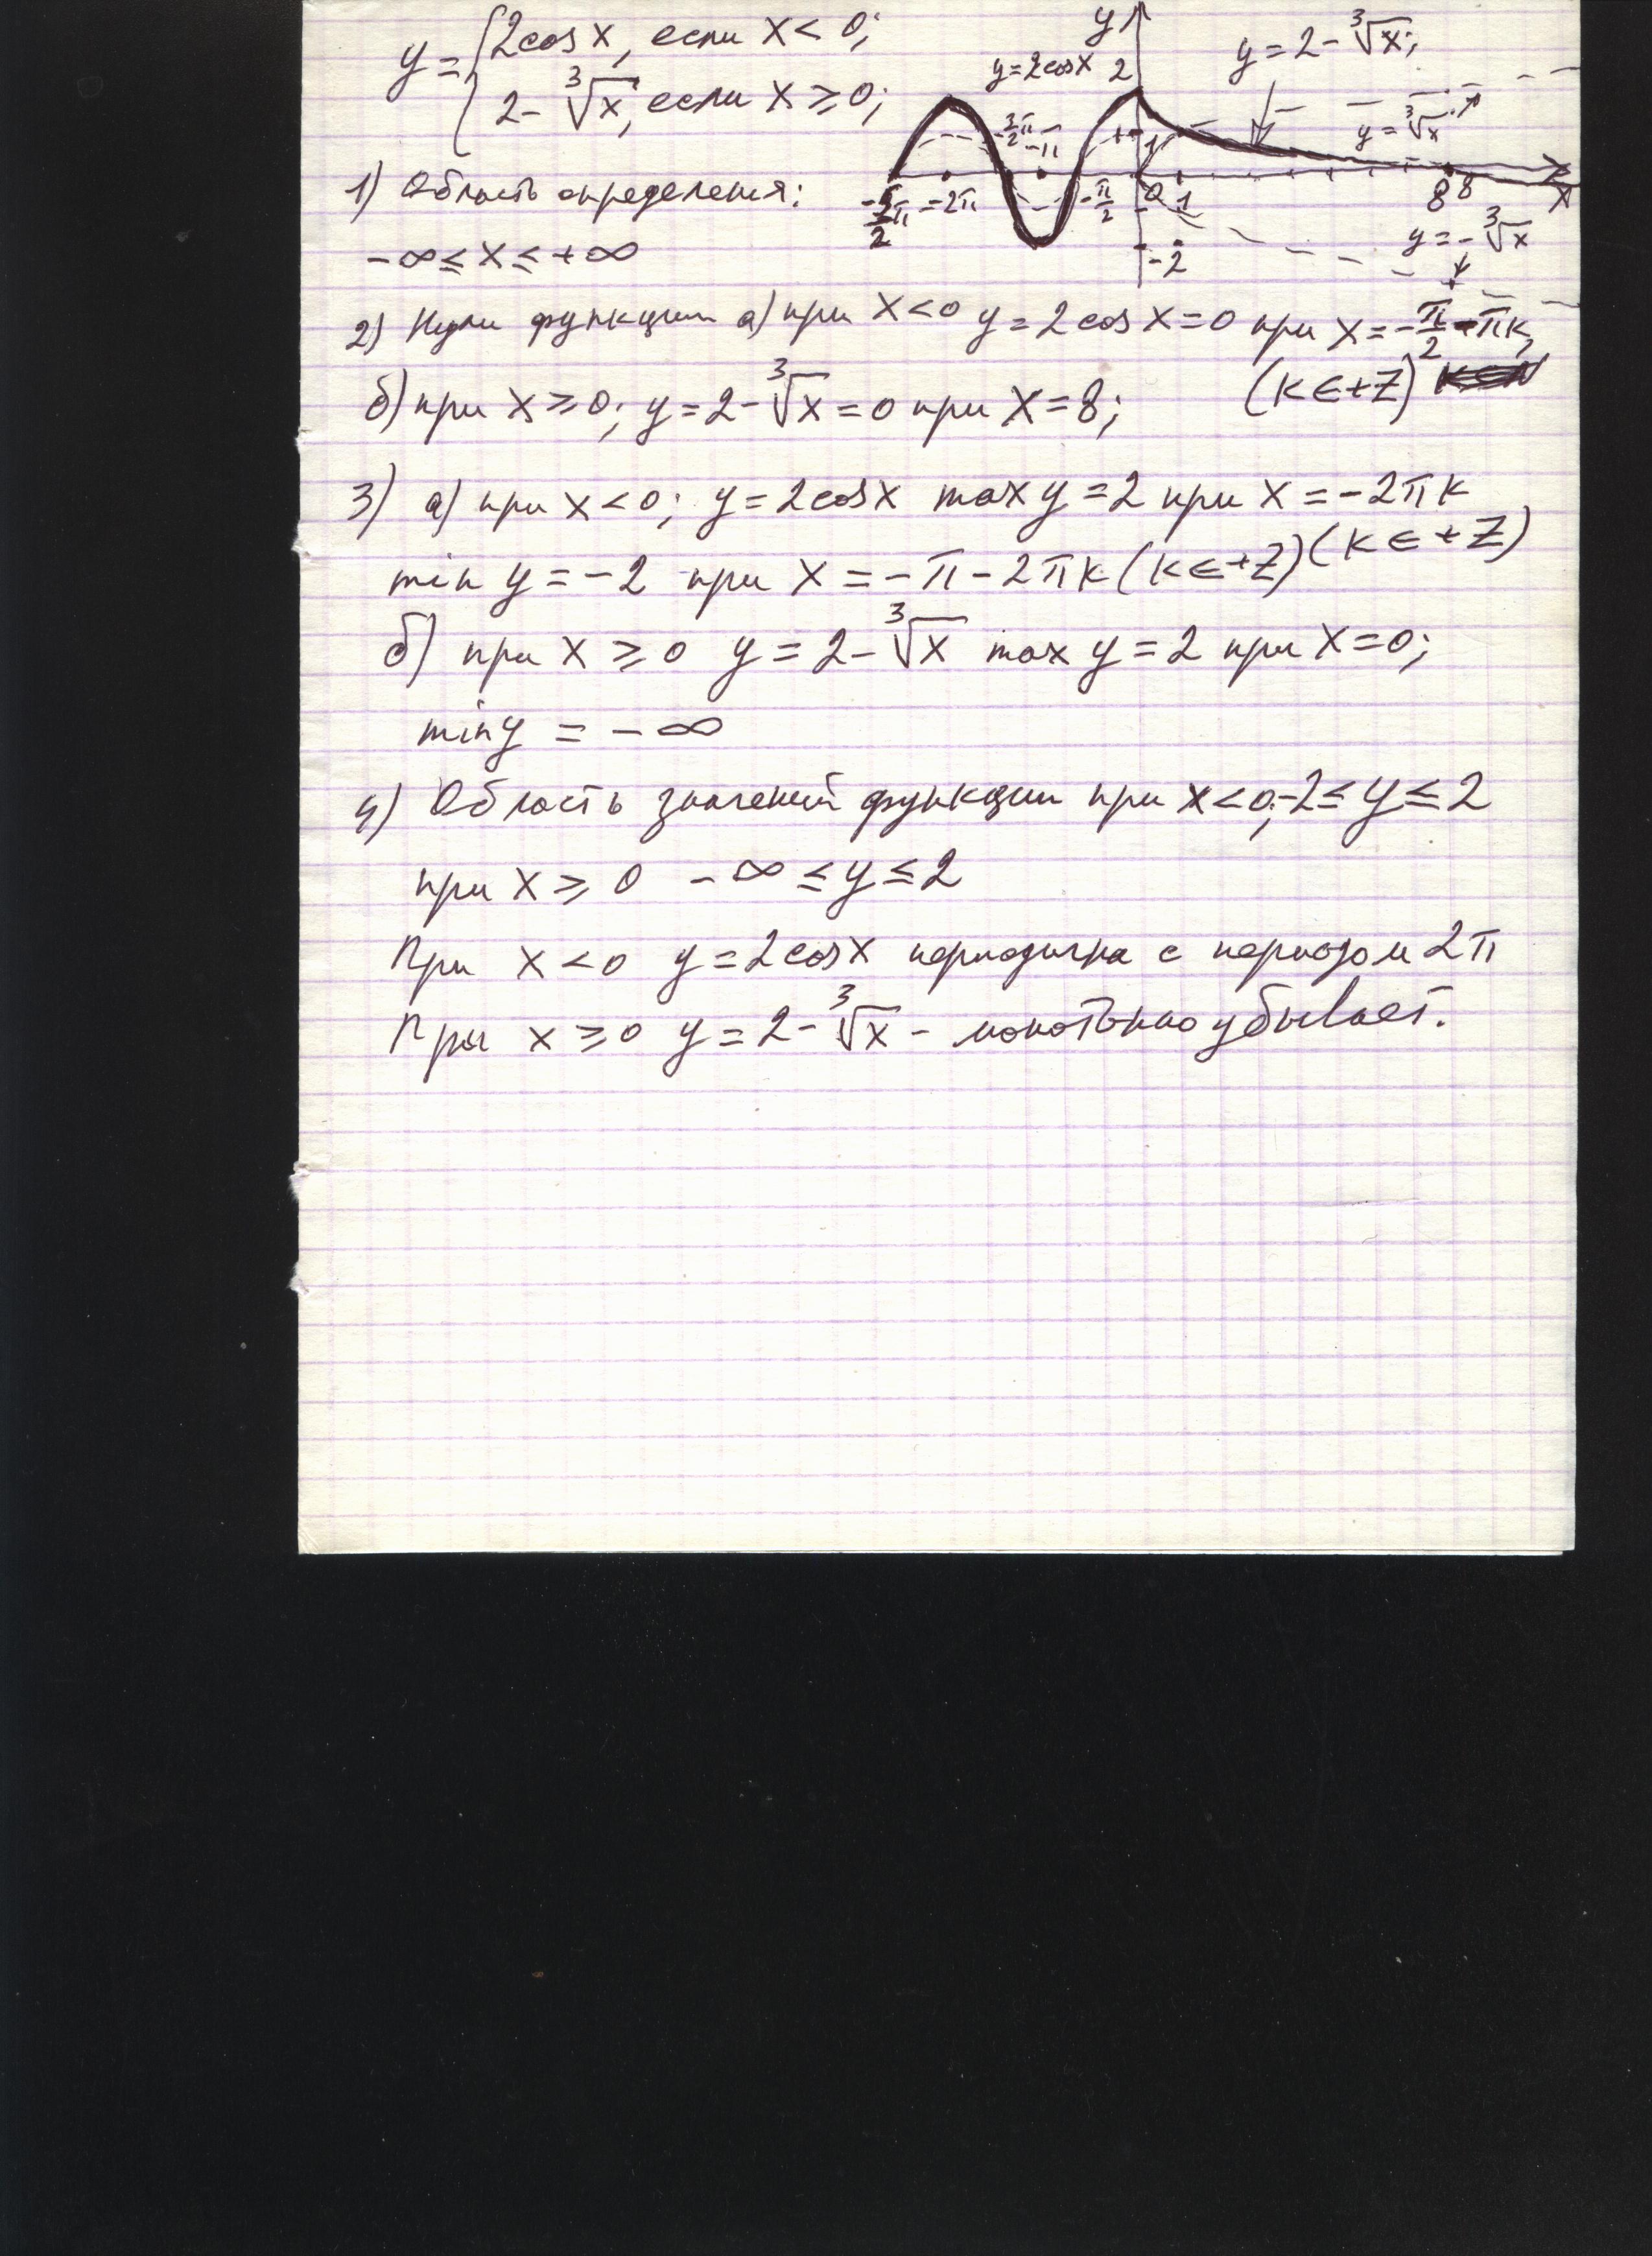 y = { 2cos x, если x < 0;
2 - ∛x, если x ≥ 0;
y
y = 2 - ∛x;
y = 2cos x 2
-3/2 π -π 1 y = ∛x
-5/2 π -2π -π/2 0 1 8 8 x
-2 y = -∛x
1) Область определения:
-∞ ≤ x ≤ +∞
2) Нули функции а) при x < 0 y = 2 cos x = 0 при x = -π/2 - πk,
(k ∈ +Z)
б) при x ≥ 0; y = 2 - ∛x = 0 при x = 8;
3) а) при x < 0; y = 2cos x max y = 2 при x = -2πk
(k ∈ +Z)
min y = -2 при x = -π - 2πk (k ∈ +Z)
б) при x ≥ 0 y = 2 - ∛x max y = 2 при x = 0;
min y = -∞
4) Область значений функции при x < 0; -2 ≤ y ≤ 2
при x ≥ 0 -∞ ≤ y ≤ 2
При x < 0 y = 2cos x периодична с периодом 2π
При x ≥ 0 y = 2 - ∛x - монотонно убывает.